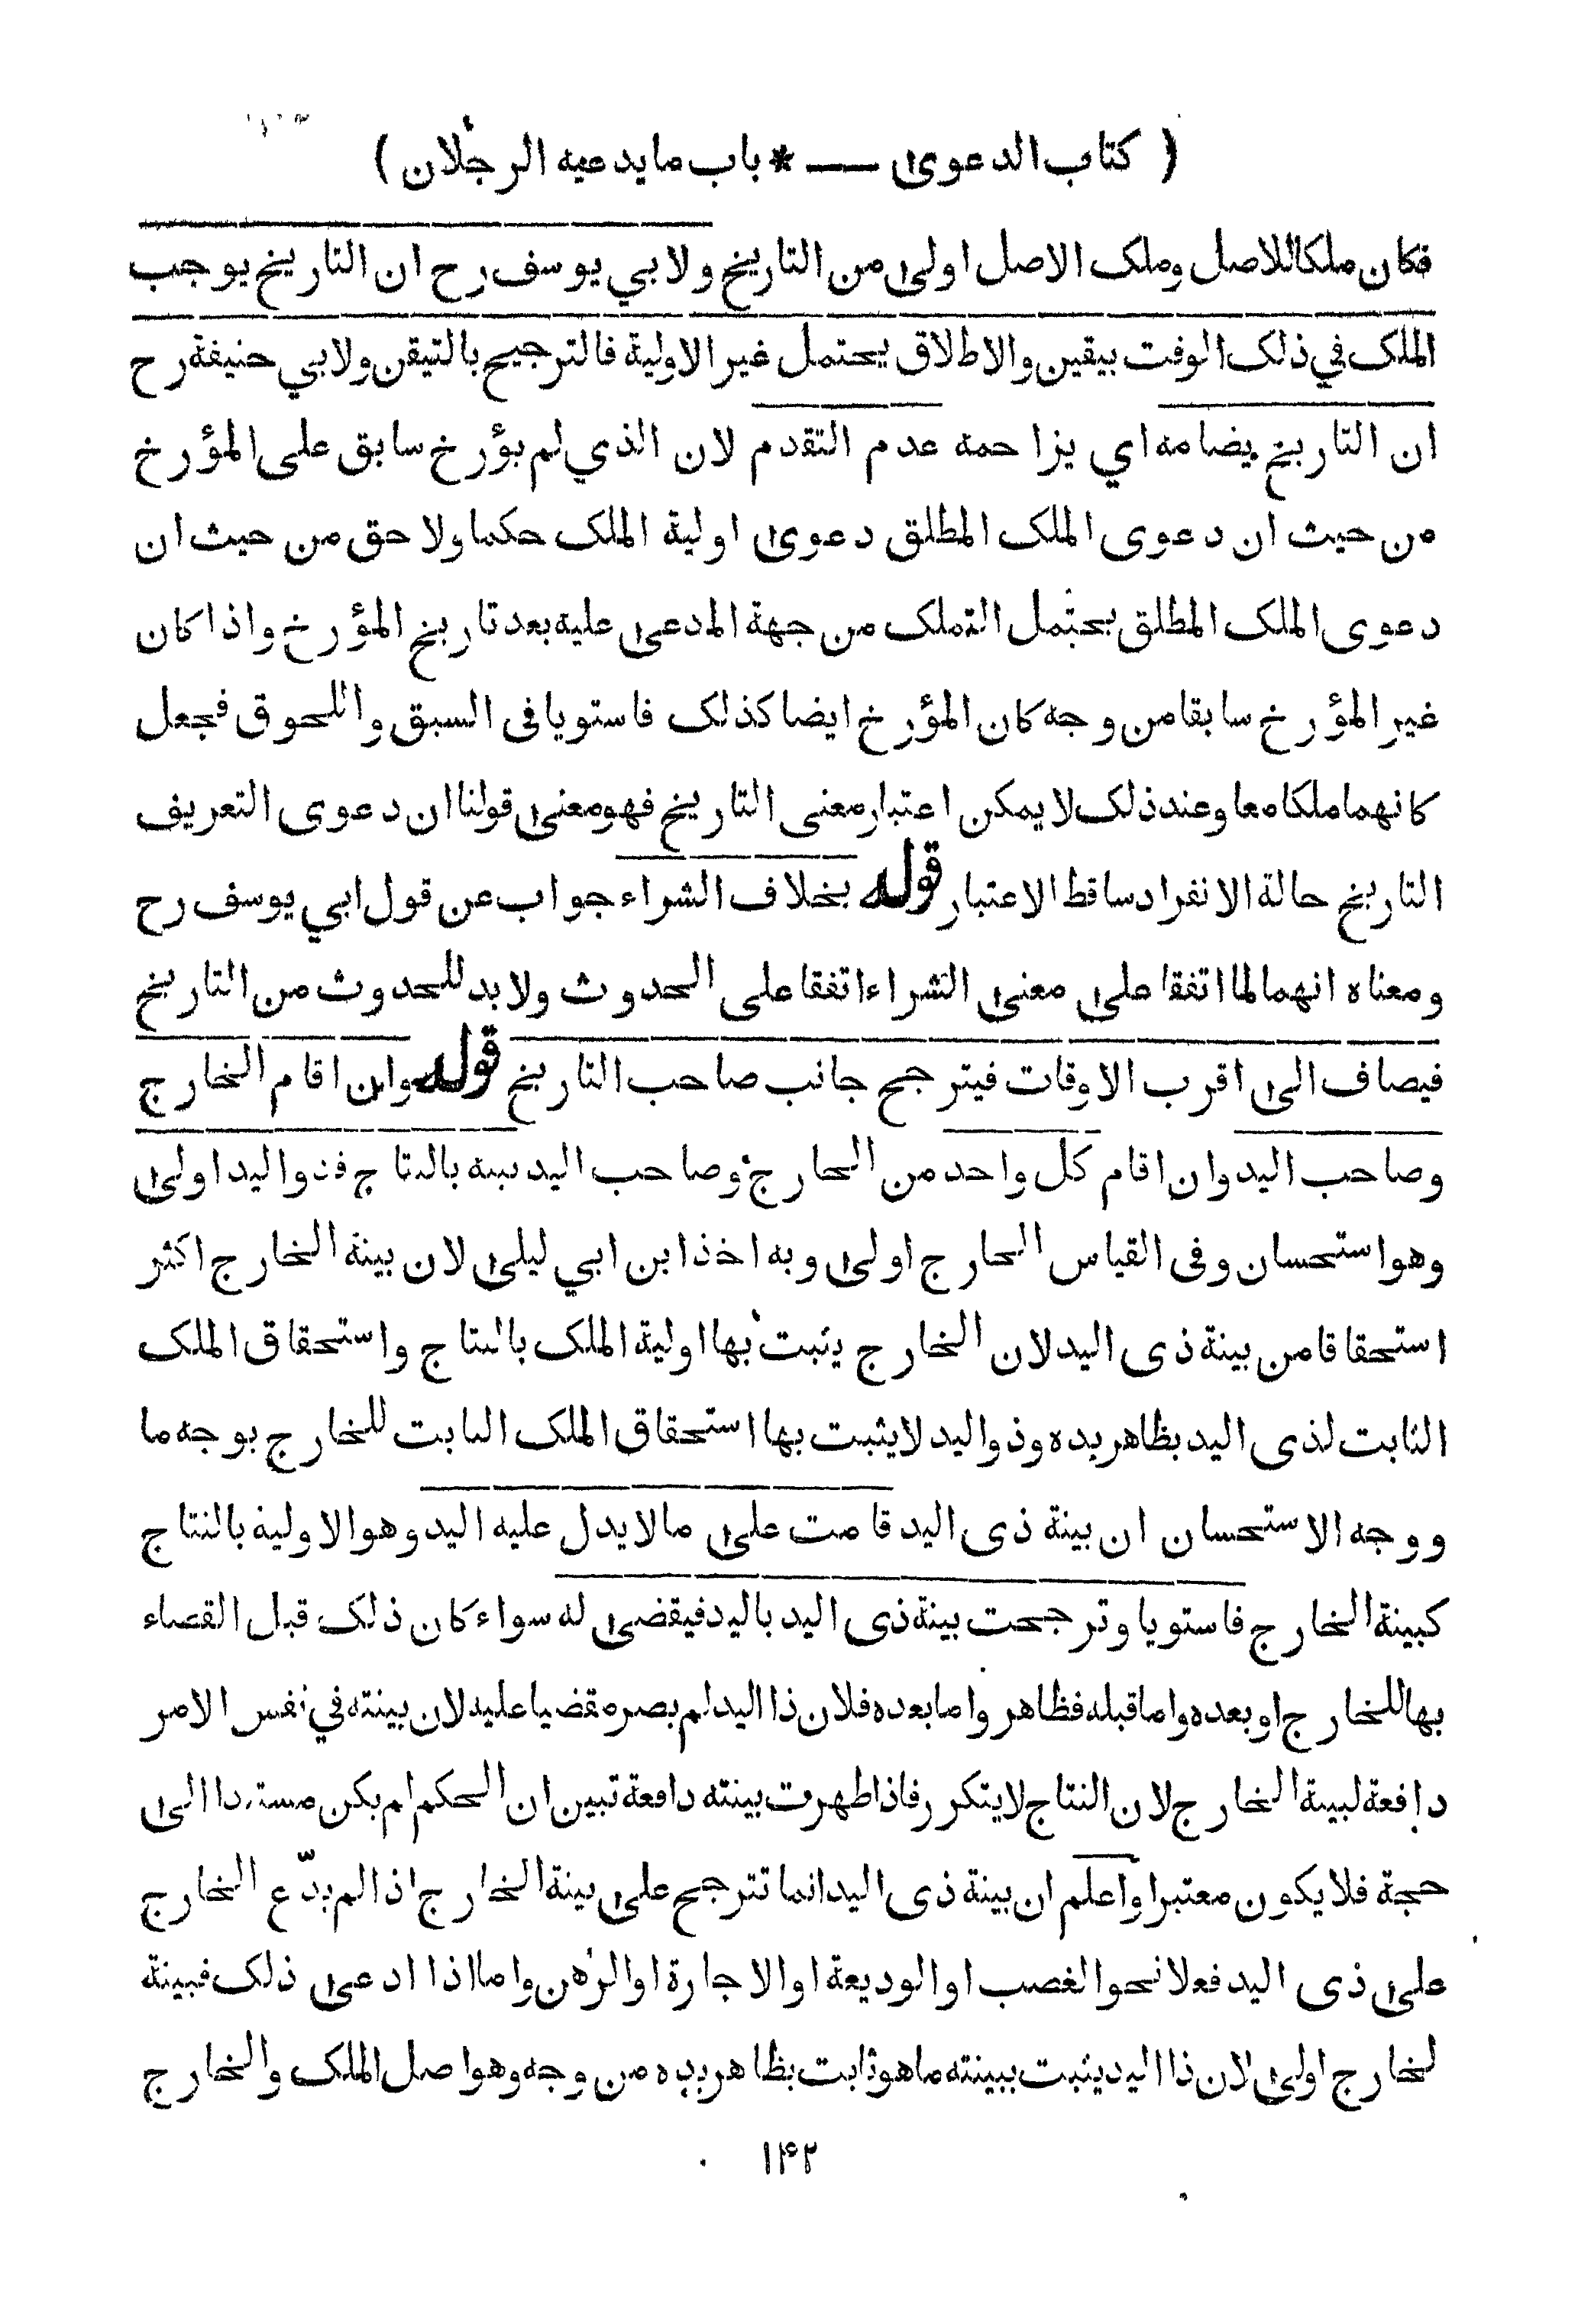 ( كتاب الدعوى —— * باب ما يدعيه الرجلان )
فكان ملكا للاصل وملك الاصل اولى من التاريخ ولابي يوسف رح ان التاريخ يوجب
الملك في ذلك الوقت بيقين والاطلاق يحتمل غير الاولية فالترجيح بالتيقن ولابي حنيفة رح
ان التاريخ يضامه اي يزاحمه عدم التقدم لان الذي لم يؤرخ سابق على المؤرخ
من حيث ان دعوى الملك المطلق دعوى اولية الملك حكما ولاحق من حيث ان
دعوى الملك المطلق يحتمل التملك من جهة المدعى عليه بعد تاريخ المؤرخ واذا كان
غير المؤرخ سابقا من وجه كان المؤرخ ايضا كذلك فاستويا فى السبق واللحوق فجعل
كانهما ملكا معا وعند ذلك لا يمكن اعتبار معنى التاريخ فهو معنى قولنا ان دعوى التعريف
التاريخ حالة الانفراد ساقط الاعتبار قوله بخلاف الشراء جواب عن قول ابي يوسف رح
ومعناه انهما لما اتفقا على معنى الشراء اتفقا على الحدوث ولابد للحدوث من التاريخ
فيضاف الى اقرب الاوقات فيترجح جانب صاحب التاريخ قوله وان اقام الخارج
وصاحب اليد وان اقام كل واحد من الخارج وصاحب اليد بينة بالنتاج فذو اليد اولى
وهو استحسان وفى القياس الخارج اولى وبه اخذ ابن ابي ليلى لان بينة الخارج اكثر
استحقاقا من بينة ذى اليد لان الخارج يثبت بها اولية الملك بالنتاج واستحقاق الملك
الثابت لذى اليد بظاهر يده وذو اليد لا يثبت بها استحقاق الملك الثابت للخارج بوجه ما
ووجه الاستحسان ان بينة ذى اليد قامت على مالا يدل عليه اليد وهو الاولية بالنتاج
كبينة الخارج فاستويا وترجحت بينة ذى اليد باليد فيقضى له سواء كان ذلك قبل القضاء
بها للخارج او بعده واما قبله فظاهر واما بعده فلان ذا اليد لم يصر مقضيا عليه لان بينته في نفس الامر
دافعة لبينة الخارج لان النتاج لا يتكرر فاذا ظهرت بينته دافعة تبين ان الحكم لم يكن مستندا الى
حجة فلا يكون معتبرا واعلم ان بينة ذى اليد انما تترجح على بينة الخارج اذا لم يدّع الخارج
على ذى اليد فعلا نحو الغصب او الوديعة او الاجارة او الرهن واما اذا ادعى ذلك فبينة
لخارج اولى لان ذا اليد يثبت ببينته ما هو ثابت بظاهر يده من وجه وهو اصل الملك والخارج
۱۴۲